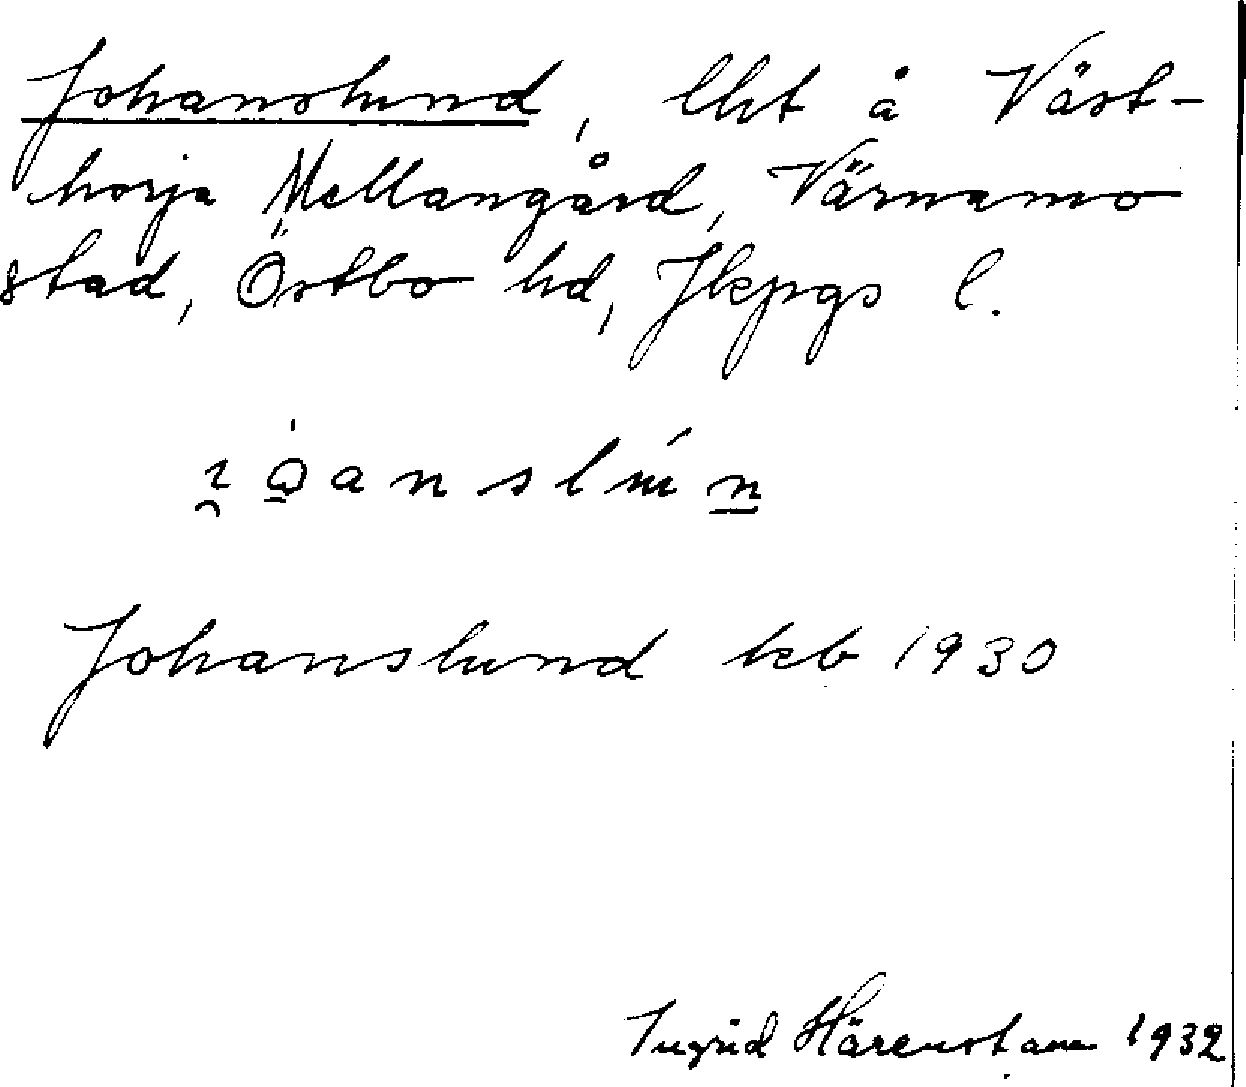 Johanslund, lht å Väst-
horja Mellangård, Värnamo
stad, Östbo hd, Jkpgs l.
Johanslund kb 1930
Ingrid Härenstam 1932